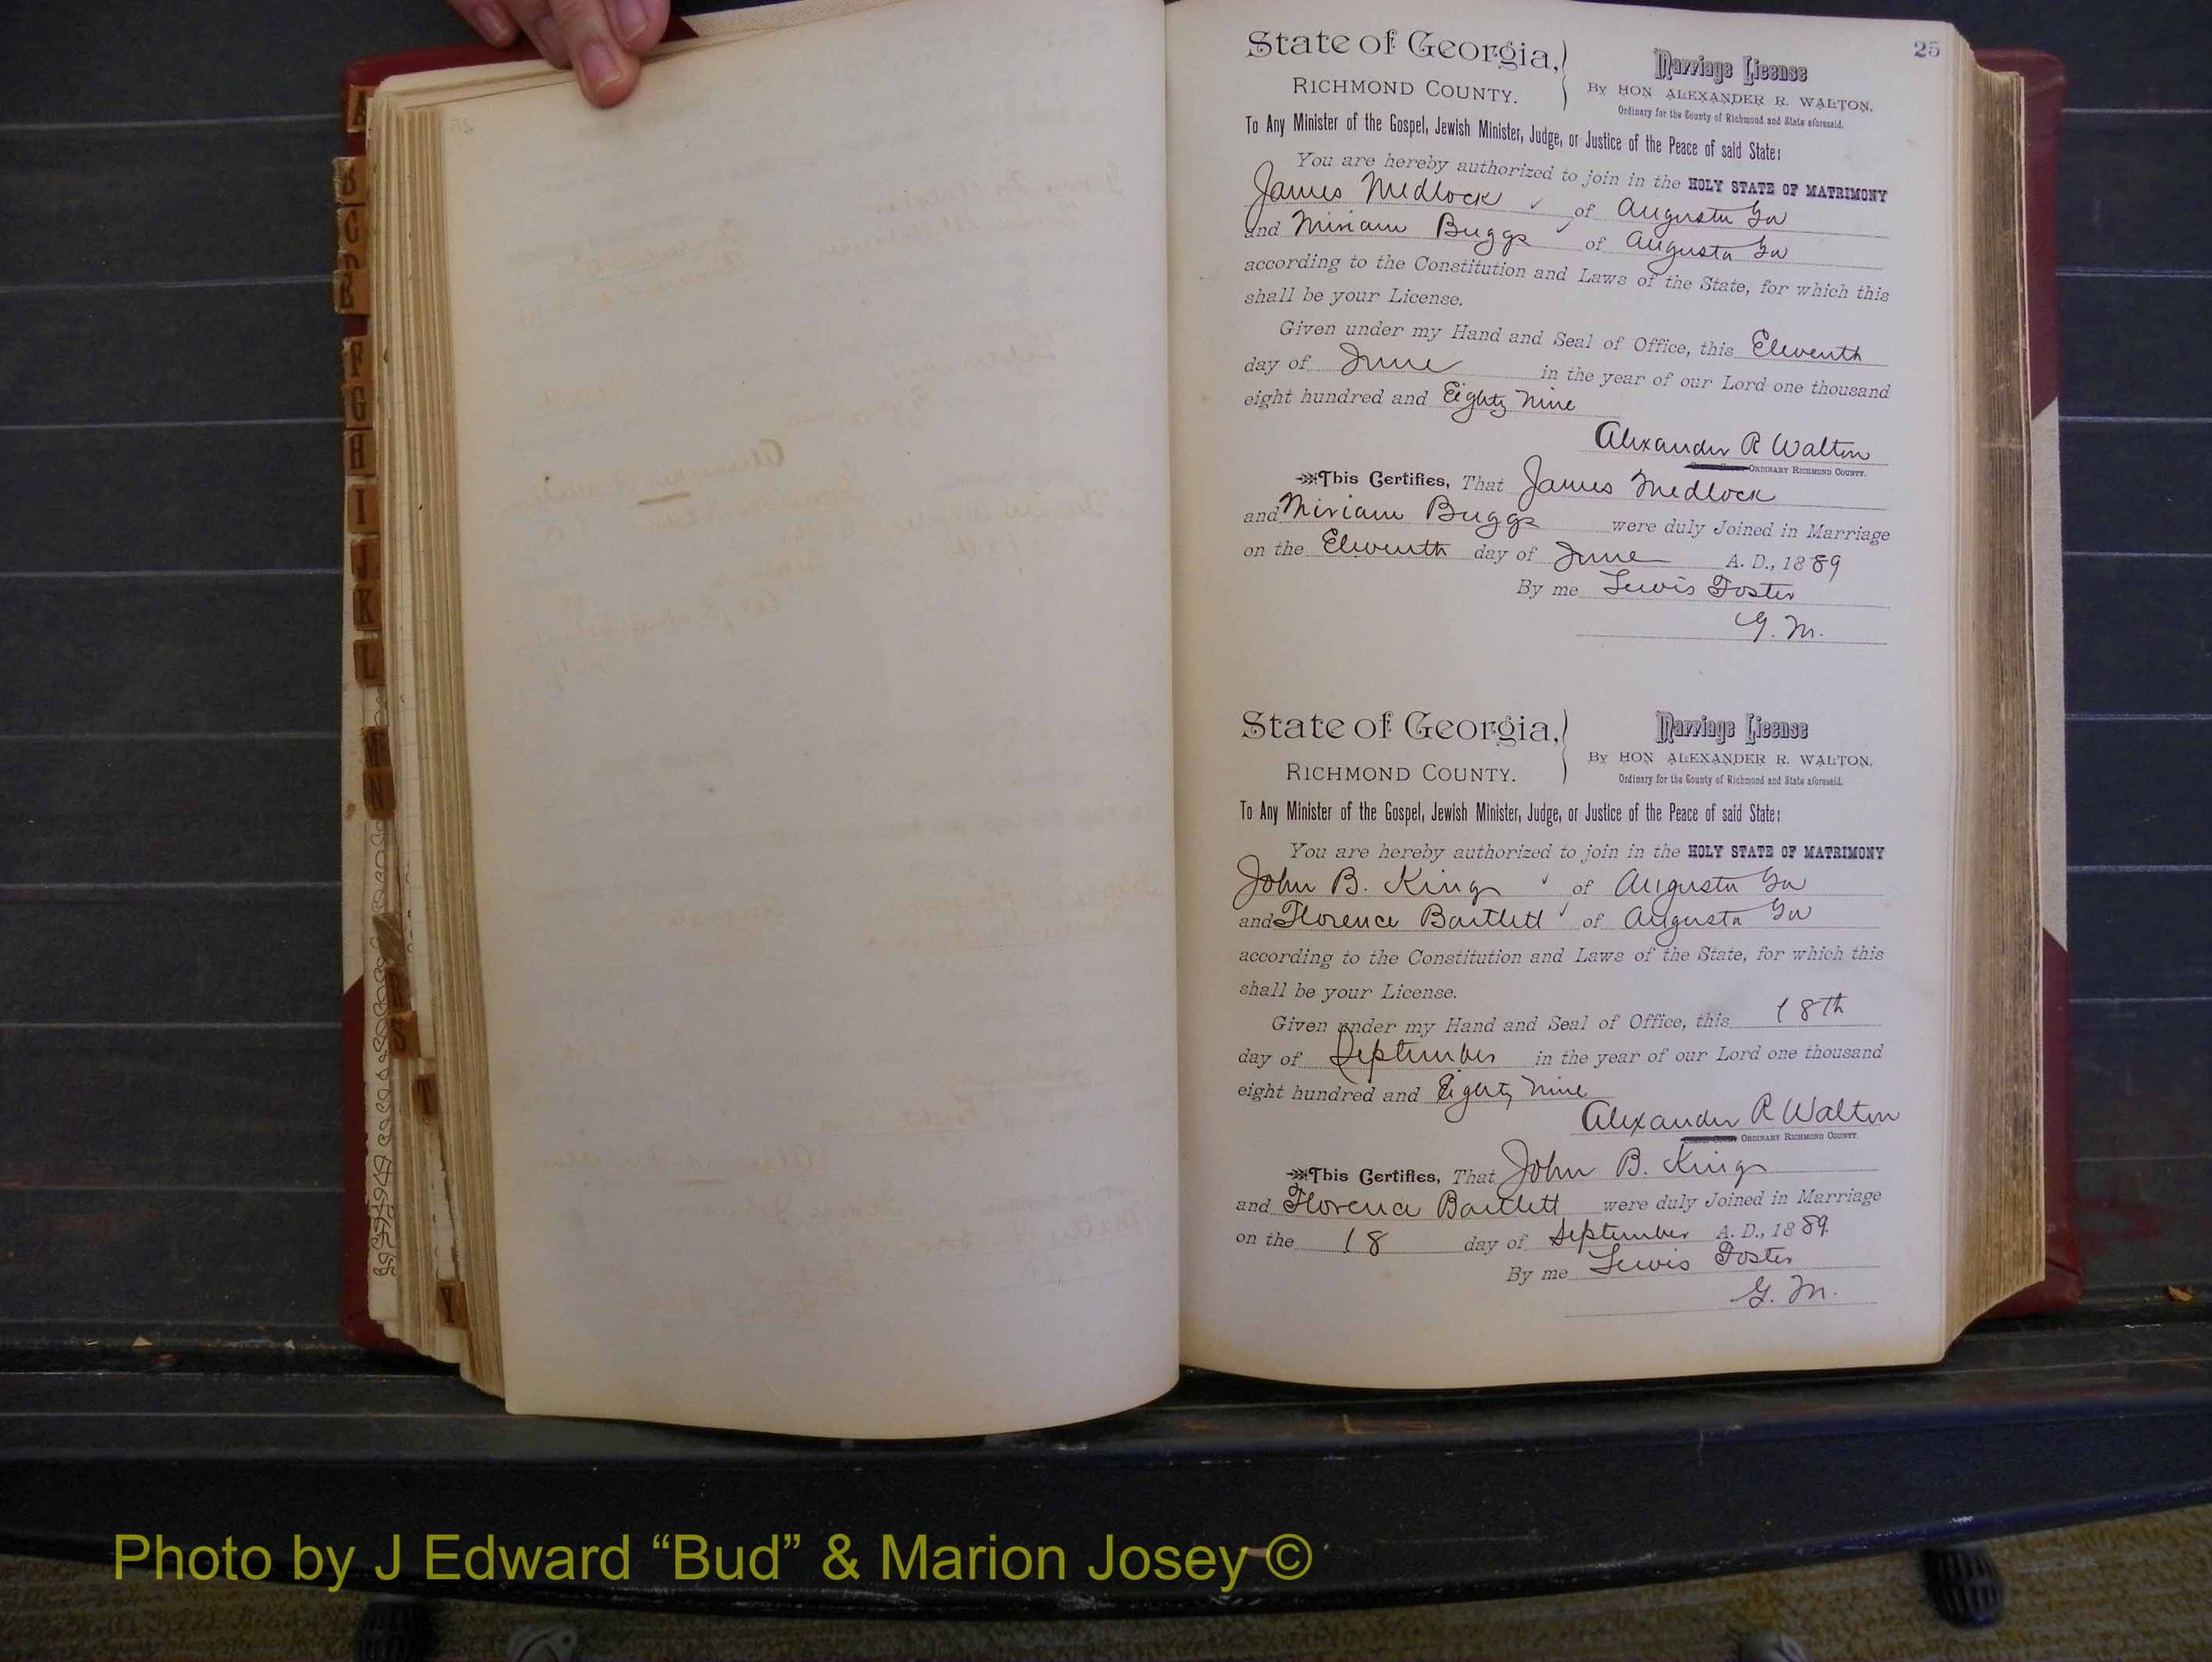 25
State of Georgia,
RICHMOND COUNTY.
Marriage License
By HON ALEXANDER R. WALTON,
Ordinary for the County of Richmond and State aforesaid.
To Any Minister of the Gospel, Jewish Minister, Judge, or Justice of the Peace of said State:
You are hereby authorized to join in the HOLY STATE OF MATRIMONY
James Medlock ✓ of Augusta Ga
and Miriam Buggs ✓ of Augusta Ga
according to the Constitution and Laws of the State, for which this
shall be your License.
Given under my Hand and Seal of Office, this Eleventh
day of June in the year of our Lord one thousand
eight hundred and Eighty Nine
Alexander R Walton
ORDINARY RICHMOND COUNTY.
This Certifies, That James Medlock
and Miriam Buggs were duly Joined in Marriage
on the Eleventh day of June A. D., 1889
By me Lewis Foster
G. M.
State of Georgia,
RICHMOND COUNTY.
Marriage License
By HON ALEXANDER R. WALTON,
Ordinary for the County of Richmond and State aforesaid.
To Any Minister of the Gospel, Jewish Minister, Judge, or Justice of the Peace of said State:
You are hereby authorized to join in the HOLY STATE OF MATRIMONY
John B. King ✓ of Augusta Ga
and Florence Bartlett ✓ of Augusta Ga
according to the Constitution and Laws of the State, for which this
shall be your License.
Given under my Hand and Seal of Office, this 18th
day of September in the year of our Lord one thousand
eight hundred and Eighty Nine
Alexander R Walton
ORDINARY RICHMOND COUNTY.
This Certifies, That John B. King
and Florence Bartlett were duly Joined in Marriage
on the 18 day of September A. D., 1889
By me Lewis Foster
G. M.
A
B
C
D
E
F
G
H
I
J
K
L
N
S
T
Y
Photo by J Edward “Bud” & Marion Josey ©